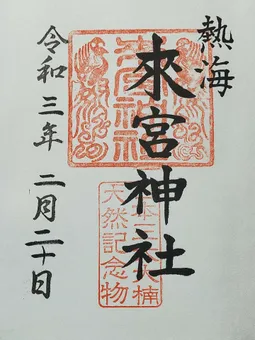 熱海
來宮神社
大楠
天然記念物
令和三年 二月二十日